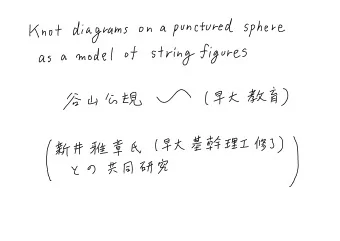 Knot diagrams on a punctured sphere
as a model of string figures
谷山公規 (早大 教育)
(新井 雅章氏 (早大 基幹理工修了)
との 共同研究)